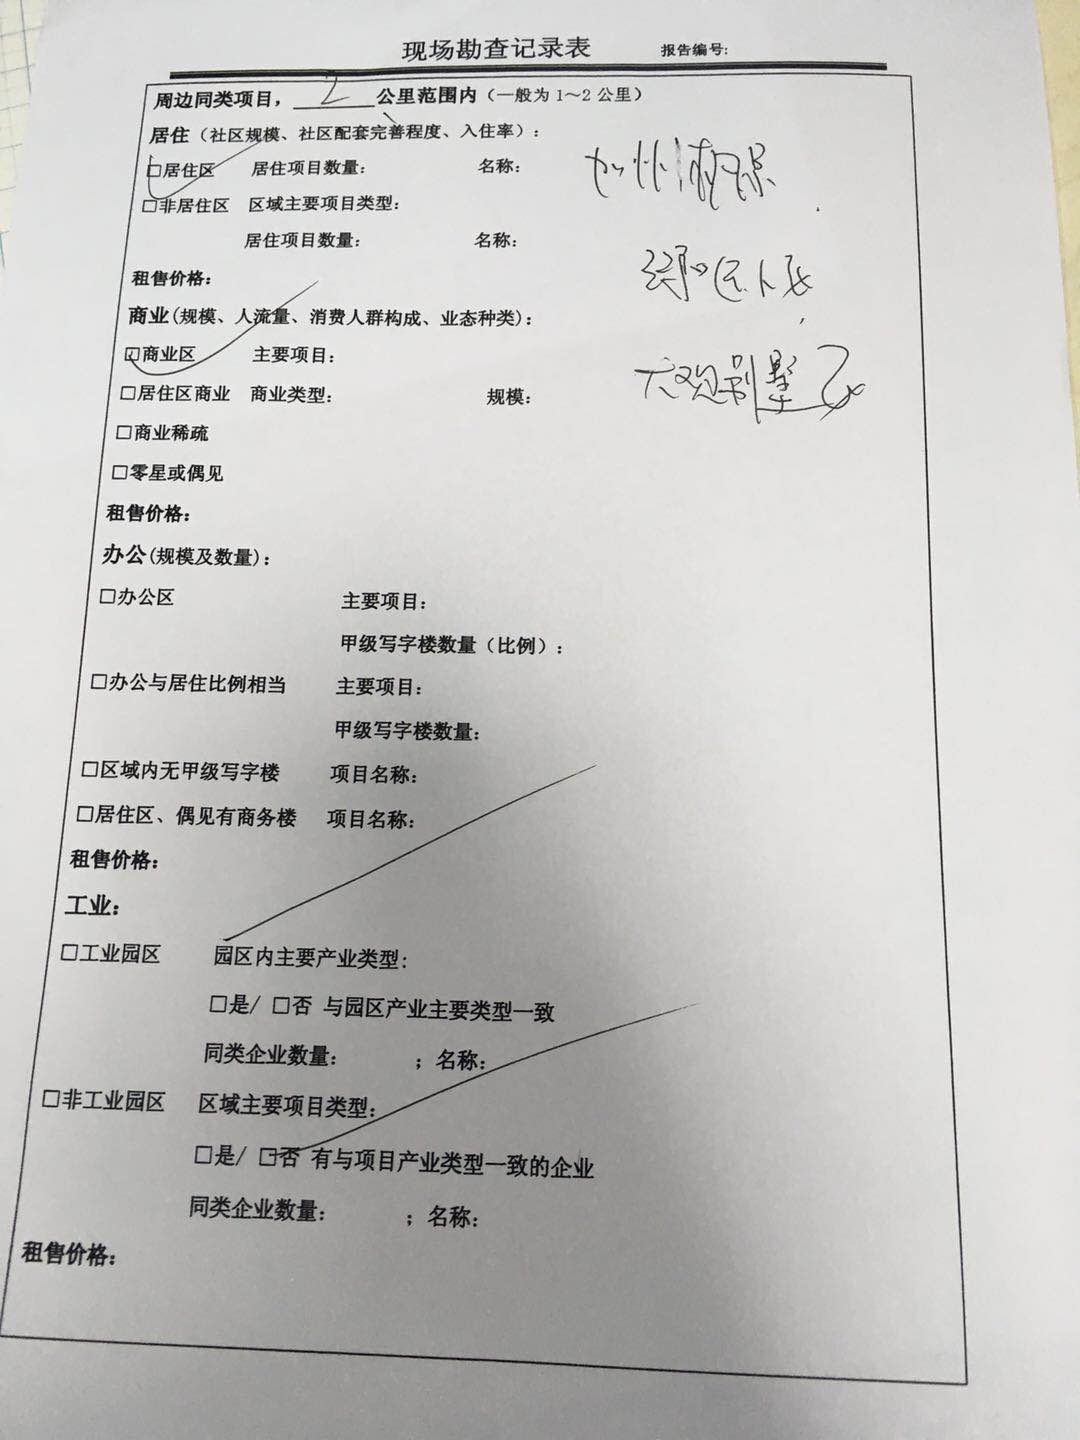 现场勘查记录表 报告编号:
周边同类项目，2公里范围内（一般为 1～2 公里）
居住（社区规模、社区配套完善程度、入住率）：
□居住区 居住项目数量： 名称： 加州
□非居住区 区域主要项目类型：
居住项目数量： 名称：
租售价格：
商业(规模、人流量、消费人群构成、业态种类)：
□商业区 主要项目： 大观别墅
□居住区商业 商业类型： 规模：
□商业稀疏
□零星或偶见
租售价格：
办公(规模及数量)：
□办公区 主要项目：
甲级写字楼数量（比例）：
□办公与居住比例相当 主要项目：
甲级写字楼数量：
□区域内无甲级写字楼 项目名称：
□居住区、偶见有商务楼 项目名称：
租售价格：
工业：
□工业园区 园区内主要产业类型：
□是/ □否 与园区产业主要类型一致
同类企业数量： ；名称：
□非工业园区 区域主要项目类型：
□是/ □否 有与项目产业类型一致的企业
同类企业数量： ；名称：
租售价格：